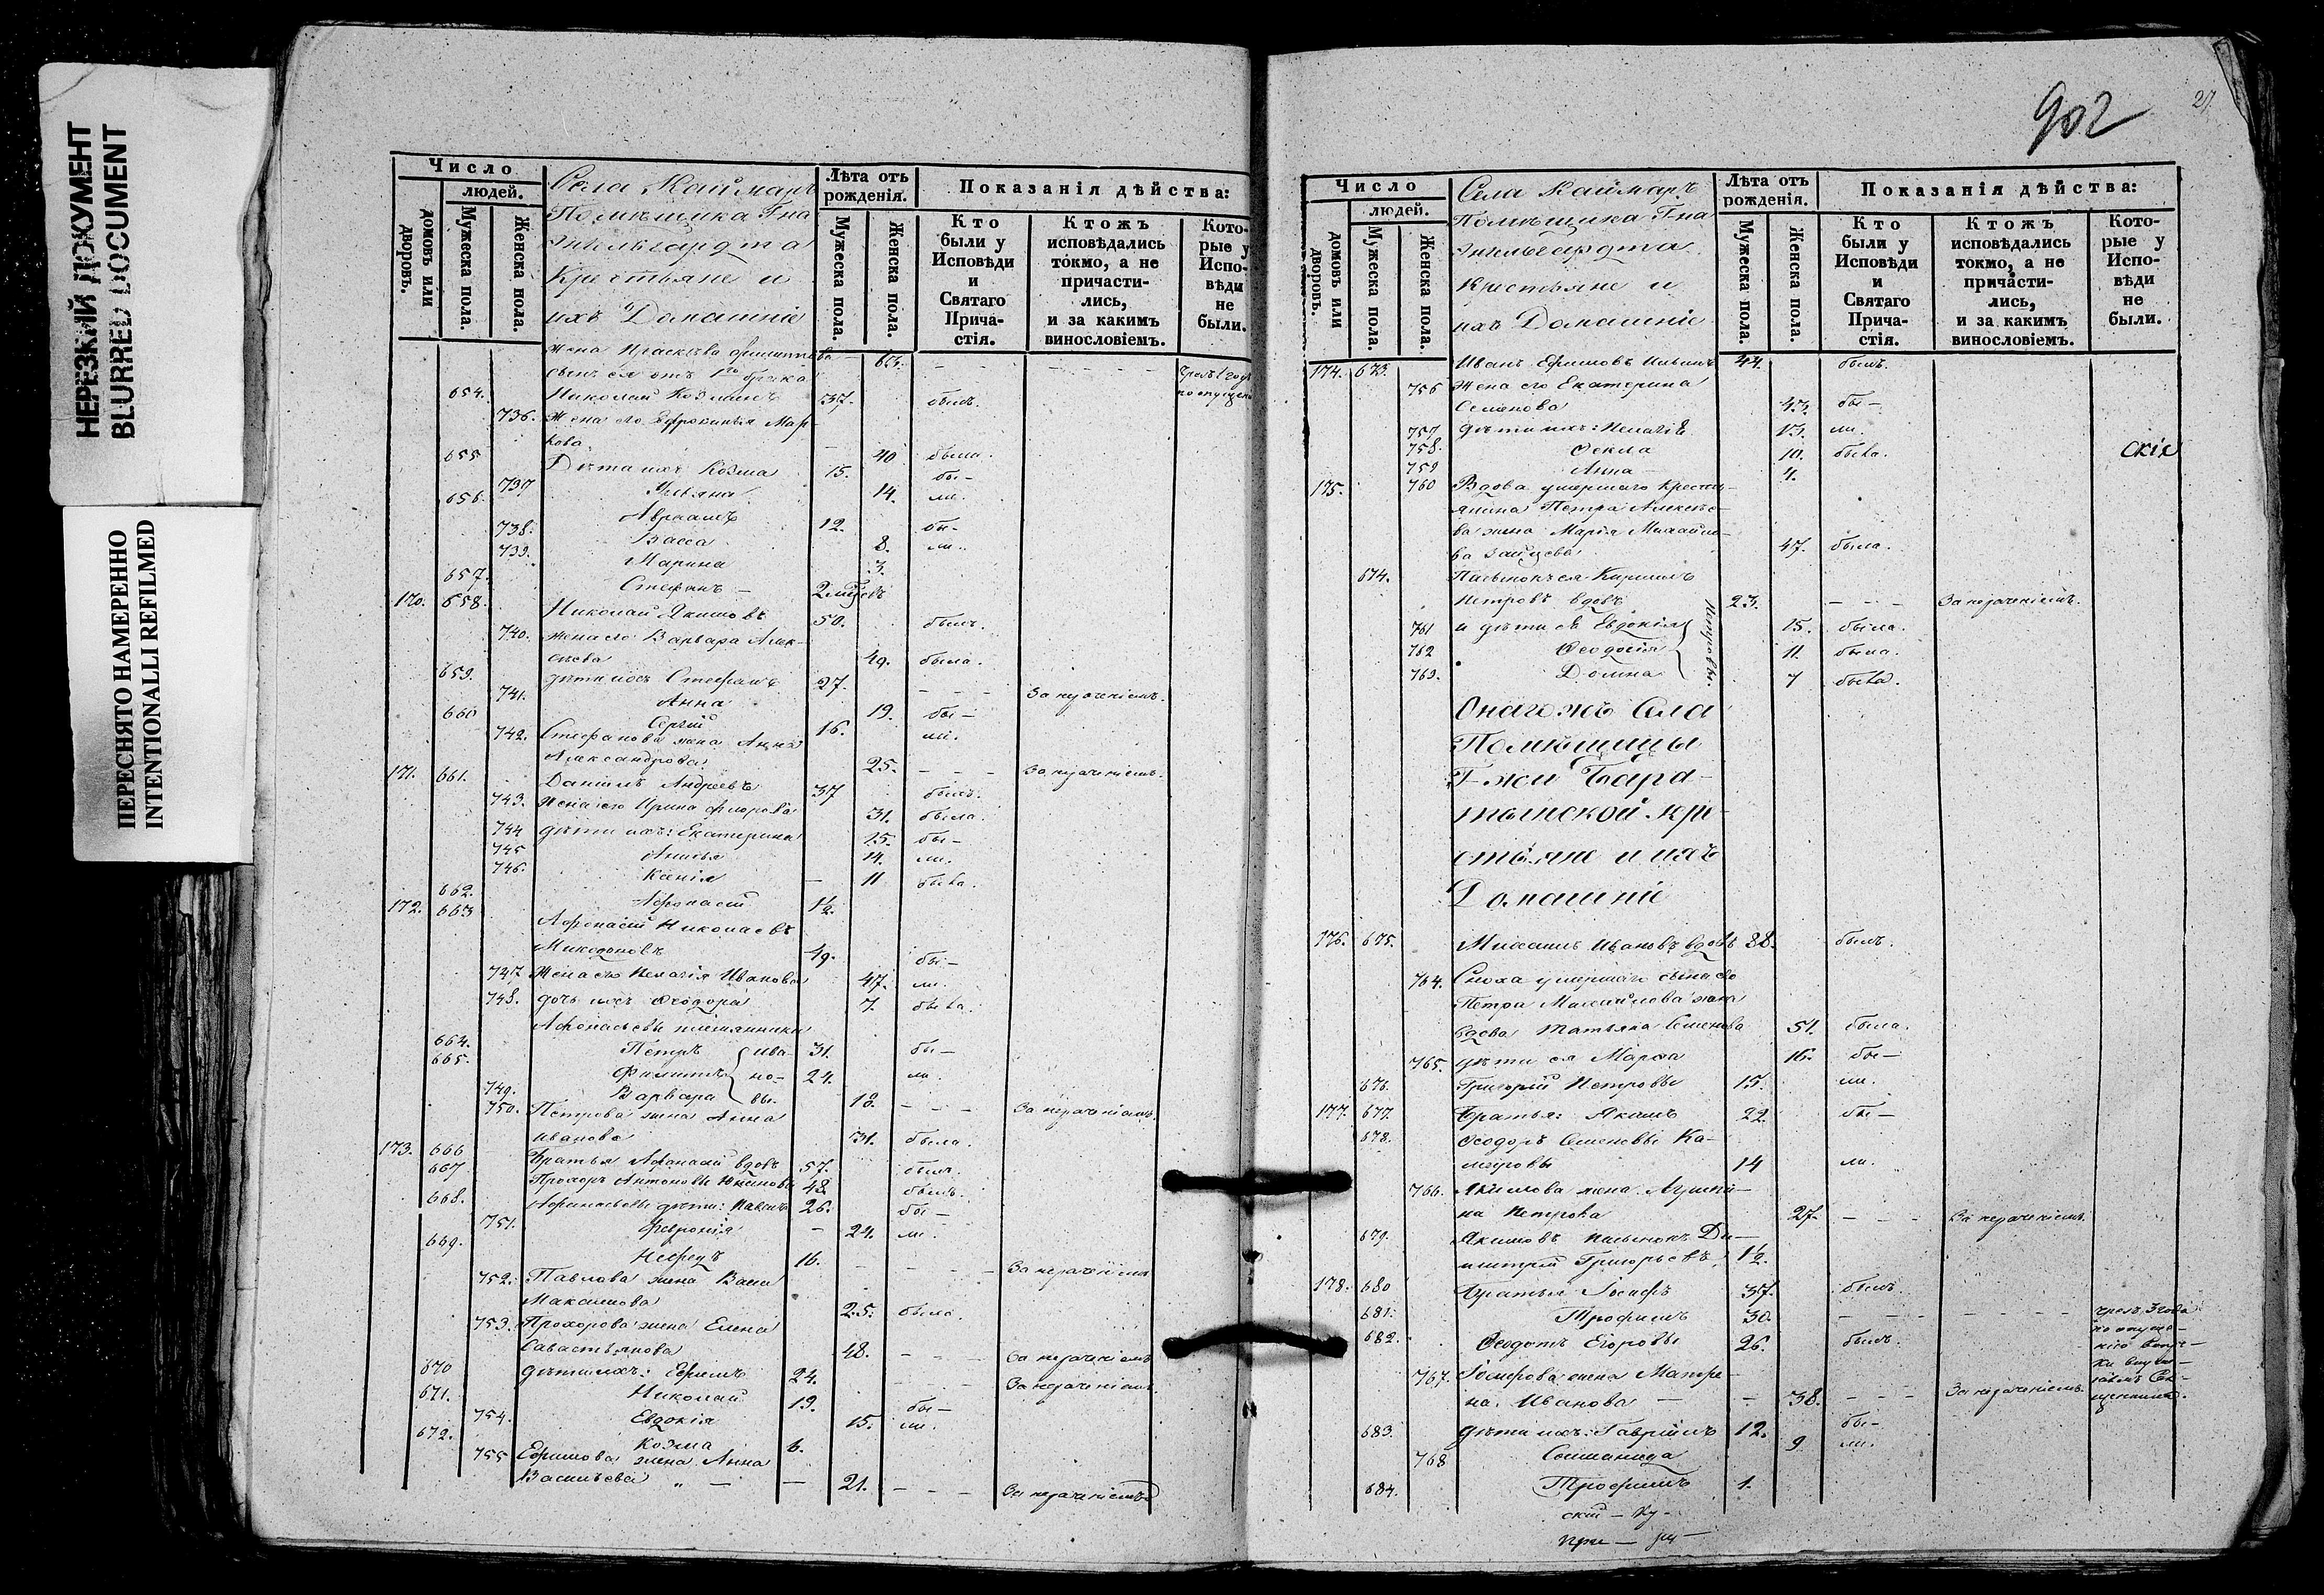 НЕРЕЗКИЙ ДОКУМЕНТ
BLURRED DOCUMENT
ПЕРЕСНЯТО НАМЕРЕННО
INTENTIONALLI REFILMED
Число
людей.
домовъ или дворовъ.
Мужеска пола.
Женска пола.
Села Каймаръ
Помѣщика Г-на
Энгельгардта
Крестьяне и
ихъ Домашніе
Лѣта отъ рожденія.
Мужеска пола.
Женска пола.
Показанія дѣйства:
Кто были у Исповѣди и Святаго Прича-стія.
Ктожъ исповѣдались токмо, а не причасти-лись, и за какимъ винословіемъ.
Кото-рые у Испо-вѣди не были.
Жена Праскева Филиппова — 63. — — — — —
сынъ ея отъ 1го брака
654. Николай Козминъ 37. былъ.
736. Жена его Евфросинья Мар-
кова 40 была.
655 Дѣти ихъ Козма 15. бы-
737 Ульяна 14. ли.
656. Авраамъ 12. бы-
738. Васса 8. ли.
739. Марина 3.
657. Стефанъ —
170. 658. Николай Якимовъ 50. былъ.
740. жена его Варвара Алек-
сѣева 49. была.
659. дѣти ихъ Стефанъ 27. — — — За нераченіемъ.
741. Анна 19. бы—
660 Сергій 16. ли.
742. Стефанова жена Анна
Александрова 25. — — — За нераченіемъ.
171. 661. Даніилъ Андреевъ 37 былъ.
743. Жена его Ирина Федорова 31. была.
744 дѣти ихъ: Екатерина 15. бы—
745 Анисья 14. ли.
746. Ксенія — 11 была.
662. Афонасій 1½.
172. 663 Афонасій Николаевъ
49. бы—
747 Жена его Пелагія Иванова 47. ли.
748. дочь ихъ Феодора 7. была.
Афонасьевы племянники
664. Петръ Ива- 31. бы—
665. Филиппъ но- 24. ли.
749. Варвара вы. 18. — — — За нераченіемъ.
750. Петрова жена Анна
Иванова 31. была.
173. 666 Братья Афанасій вдовъ 57. былъ.
667 Прохоръ Антоновы 48. былъ.
668. Афонасьевы дѣти: Павелъ 26. бы—
751. Февронія — 24. ли.
669. 16. — — — За нераченіемъ
752. Павлова жена Васса
Максимова 25. была.
753. Прохорова жена Елена
Савастьянова 48. — — — За нераченіемъ
670 дѣти ихъ: Ефимъ 24. За нераченіемъ.
671. Николай 19. бы—
754. Евдокія 15. ли.
672. Козма 6.
755 Ефимова жена Анна
Васильева „ — — 21. — — — За нераченіемъ
902
27
Число
людей.
домовъ или дворовъ.
Мужеска пола.
Женска пола.
Села Каймаръ
Помѣщика Г-на
Энгельгардта.
Крестьяне и
ихъ Домашніе
Лѣта отъ рожденія.
Мужеска пола.
Женска пола.
Показанія дѣйства:
Кто были у Исповѣди и Святаго Прича-стія.
Ктожъ исповѣдались токмо, а не причасти-лись, и за какимъ винословіемъ.
Кото-рые у Испо-вѣди не были.
174. 673. Иванъ Ефимовъ 44. былъ.
756 Жена его Екатерина
Семенова 43. бы—
757 дѣти ихъ: Пелагія 13. ли.
758. Фекла 10. была.
скіе
759 Анна — 4.
175. 760 Вдова умершаго кресть-
янина Петра Алексѣе-
ва жена Марія Михайло-
ва Зайцева 47. была.
674. Пасынокъ ея Кириллъ
Петровъ вдовъ 23. — — — За нераченіемъ.
761 и дѣти ея Евдокія 15. была.
762 Феодосія 11. была.
Петровы.
763. Домна 7 была.
Онаго жъ Села
Помѣщицы
Г-жи Бара-
тынской кре-
стьяне и ихъ
Домашніе
176. 675. Михаилъ Ивановъ вдовъ 88. былъ.
764. Сноха умершаго сына его
Петра Михайлова жена
вдова Татьяна Семенова 51. была.
765. дѣти ея Марфа 16. бы—
676. Григорій Петровы 15. ли.
177. 677 Братья: Якимъ 22. бы—
678. Феодоръ Семеновы Ка-
14 ли.
766. Якимова жена
на Петрова 27. — — — За нераченіемъ.
679. Якимовъ пасынокъ Ди-
митрій Григорьевъ 1½.
178. 680 Братья Іосифъ 37. былъ.
681. Трофимъ 30. — — — — — — чрезъ 3 года
682. Феодотъ Егоровы 26. былъ.
767. Іосифова жена Матре-
на Иванова — — 38. — — — За нераченіемъ.
683. дѣти ихъ: Гавріилъ 12. бы—
768 9 ли.
684. Трофимъ 1.